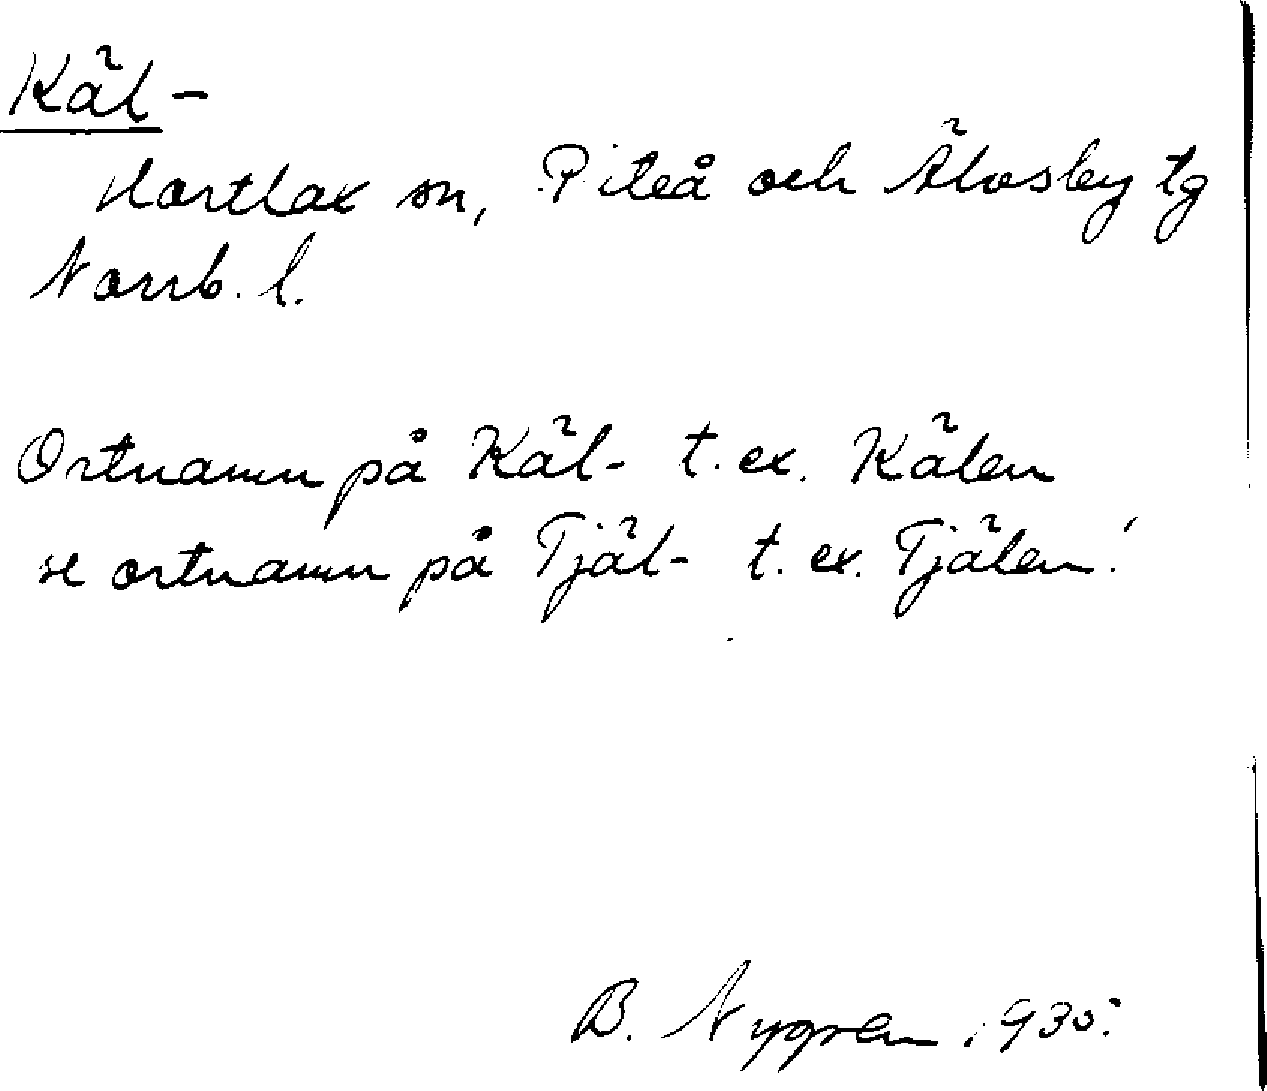 Käl-
Hortlax sn, Piteå och Älvsby tg
Norrb. l.
Ortnamn på Käl- t. ex. Kälen
se ortnamn på Tjäl- t. ex. Tjälen!
B. Nygren 1930.